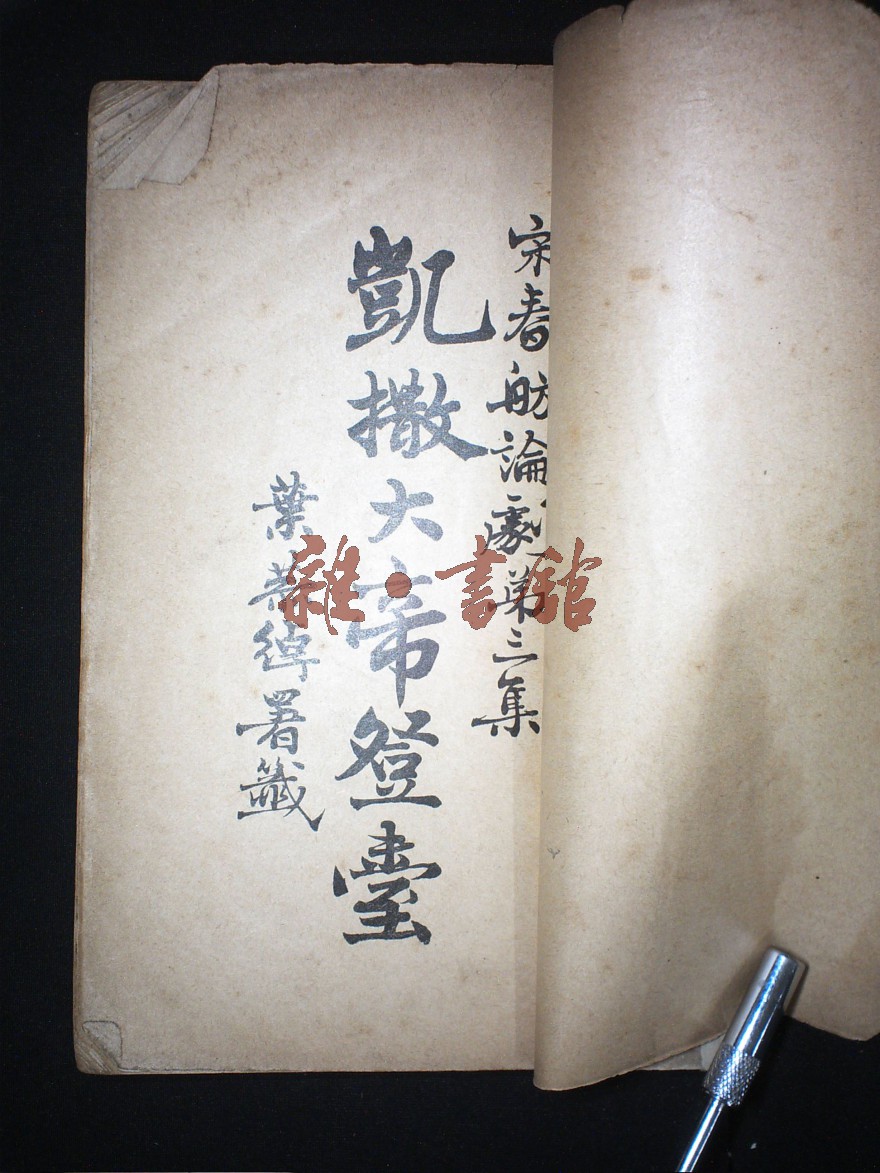 宋春舫論劇第三集
凱撒大帝登臺
葉恭綽署籤
雜·書館